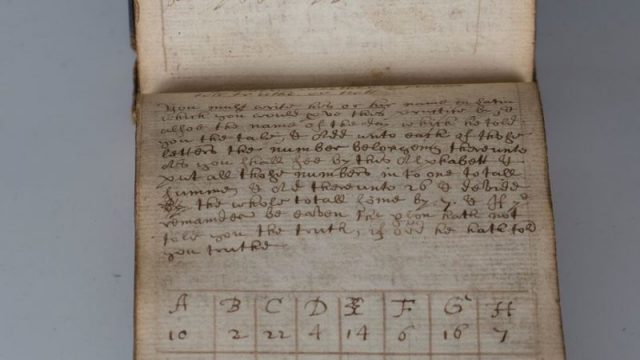 You must write his or her name in Latin
which you would pve this practise by, &
allsoe the name of the day which he told
you the tale, & Add unto each of those
letters the number belonging thereunto
As you shall see by this Alphabett &
put all those numbers in to one totall
summe, & Ad thereunto 26 & devide
the whole totall same by 7. & If yͤ
remainder be eaven the pson hath not
told you the truth, if odd he hath told
you truthe
A B C D E F G H
10 2 22 4 14 6 16 7